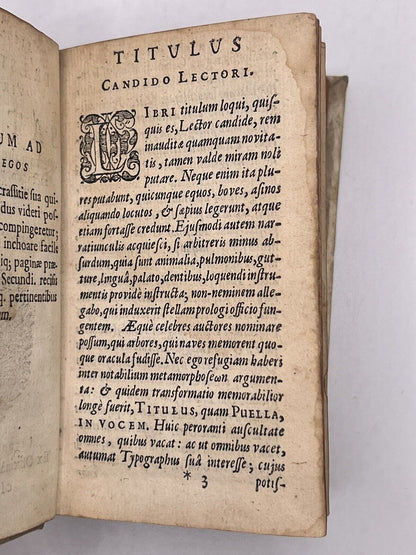 UM AD
EGOS
craſſitie ſua qui-
dus videri poſ-
compingeretur;
inchoare facile
iq; paginæ præ-
Secundi.
q. pertinentibus
TITULUS
CANDIDO LECTORI.
LIBRI titulum loqui, quiſ-
quis es, Lector candide, rem
inauditæ quamquam novita-
tis, tamen valde miram noli
putare. Neque enim ita plu-
res putabunt, quicunque equos, boves, aſinos
aliquando locutos, & ſapius legerunt, atque
etiam fortaſſe credunt. Ejuſmodi autem nar-
ratiunculis acquieſci, ſi arbitreris minus ab-
ſurdum, quia ſunt animalia, pulmonibus, gut-
ture, linguâ, palato, dentibus, loquendi inſtru-
mentis providè inſtructa; non-neminem alle-
gabo, qui induxerit ſtellam prologi officio fun-
gentem. Æquè celebres auctores nominare
poſſum, qui arbores, qui naves memorent quo-
que oracula fudiſſe. Nec ego refugiam haberi
inter notabilium metamorphoſeωn argumen-
ta: & quidem transformatio memorabilior
longè fuerit, TITULUS, quam PUELLA,
IN VOCEM. Huic peroranti auſcultate
omnes, quibus vacat: ac ut omnibus vacet,
autumat Typographus ſuâ intereſſe; cujus
* 3 potiſ-